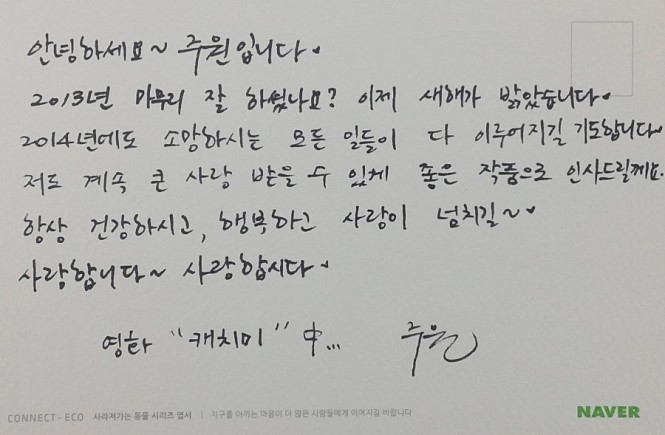 안녕하세요~ 주원입니다♥
2013년 마무리 잘 하셨나요? 이제 새해가 밝았습니다♥
2014년에도 소망하시는 모든 일들이 다 이루어지길 기도합니다♥
저도 계속 큰 사랑 받을 수 있게 좋은 작품으로 인사드릴께요.
항상 건강하시고, 행복하고 사랑이 넘치길~♥
사랑합니다~ 사랑합시다♥
영화 "캐치미" 中... 주원
CONNECT - ECO 사라져가는 동물 시리즈 엽서 | 지구를 아끼는 마음이 더 많은 사람들에게 이어지길 바랍니다 NAVER